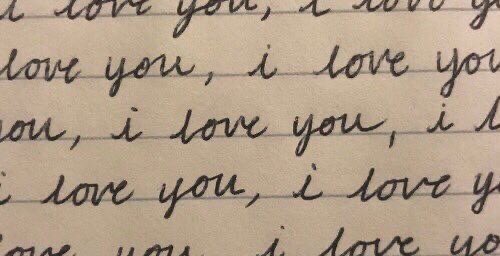 i love you, i love y
love you, i love you
you, i love you, i l
i love you, i love y
love you, i love yo